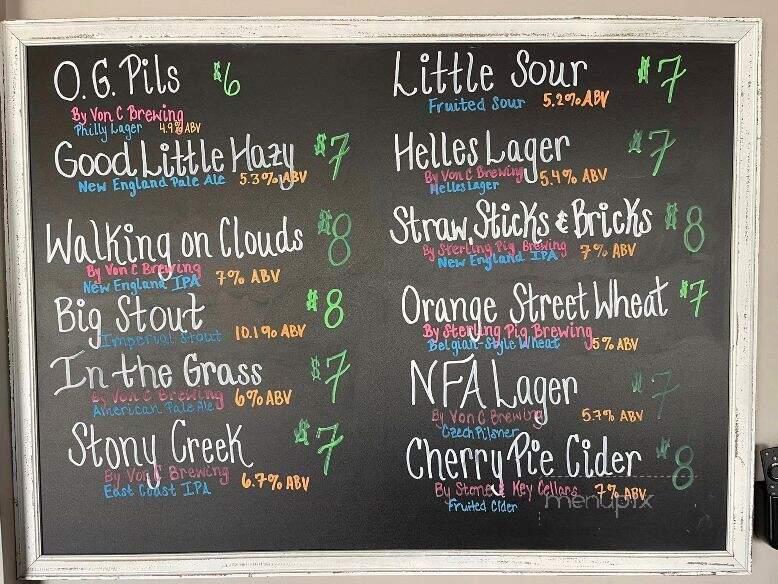 O.G. Pils $6
By Von C Brewing
Philly Lager 4.9% ABV
Good Little Hazy $7
New England Pale Ale 5.3% ABV
Walking on Clouds $8
By Von C Brewing
New England IPA 7% ABV
Big Stout $8
Imperial Stout 10.1% ABV
In the Grass $7
By Von C Brewing 6% ABV
American Pale Ale
Stony Creek $7
By Von C Brewing 6.7% ABV
East Coast IPA
Little Sour $7
Fruited Sour 5.2% ABV
Helles Lager $7
By Von C Brewing 5.4% ABV
Helles Lager
Straw, Sticks & Bricks $8
By Sterling Pig Brewing 7% ABV
New England IPA
Orange Street Wheat $7
By Sterling Pig Brewing
Belgian-Style Wheat 5% ABV
NFA Lager $7
By Von C Brewing 5.7% ABV
Czech Pilsner
Cherry Pie Cider $8
By Stone & Key Cellars 7% ABV
Fruited Cider
menupix